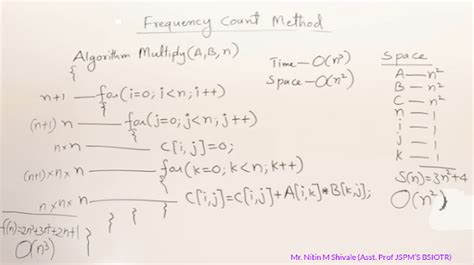 Frequency Count Method
Algorithm Multiply(A,B,n)
{
n+1 — for(i=0; i<n; i++)
{
(n+1) n — for(j=0; j<n; j++)
{
n×n — C[i,j]=0;
(n+1)×n×n — for(k=0; k<n; k++)
{
n×n×n — C[i,j]=C[i,j]+A[i,k]*B[k,j];
}
}
}
}
f(n)=2n³+3n²+2n+1
O(n³)
Time — O(n³)
Space — O(n²)
Space
A — n²
B — n²
C — n²
n — 1
i — 1
j — 1
k — 1
S(n)=3n²+4
O(n²)
Mr. Nitin M Shivale (Asst. Prof JSPM'S BSIOTR)